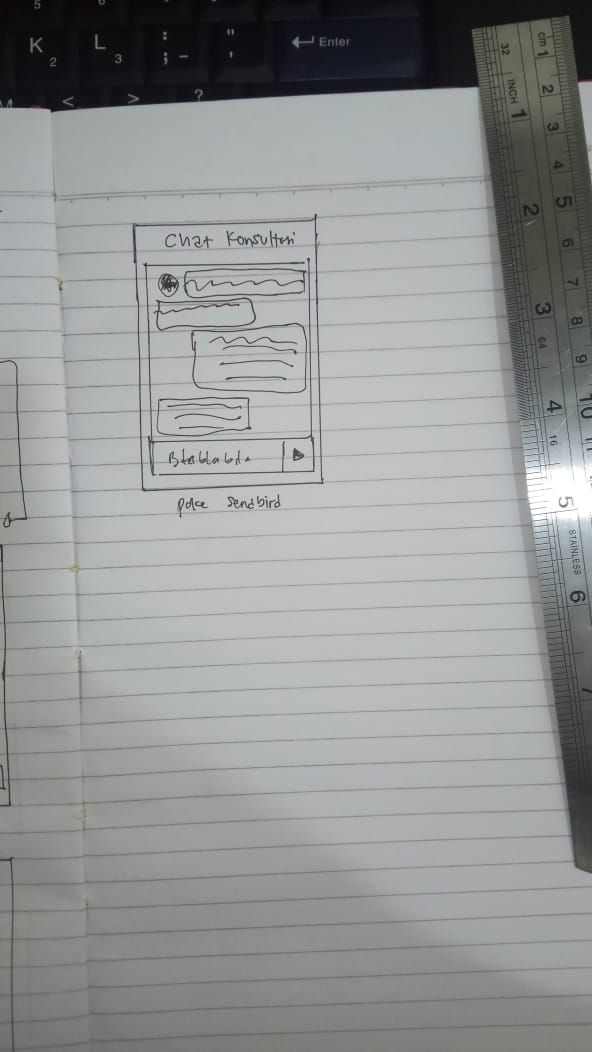 5
6
K
2
L
3
:
;
-
"
'
Enter
<
>
?
Chat Konsultasi
Blablabla
pake sendbird
cm 1
2
3
4
5
6
7
8
9
10
32
INCH 1
2
3
64
4
16
5
STAINLESS
6